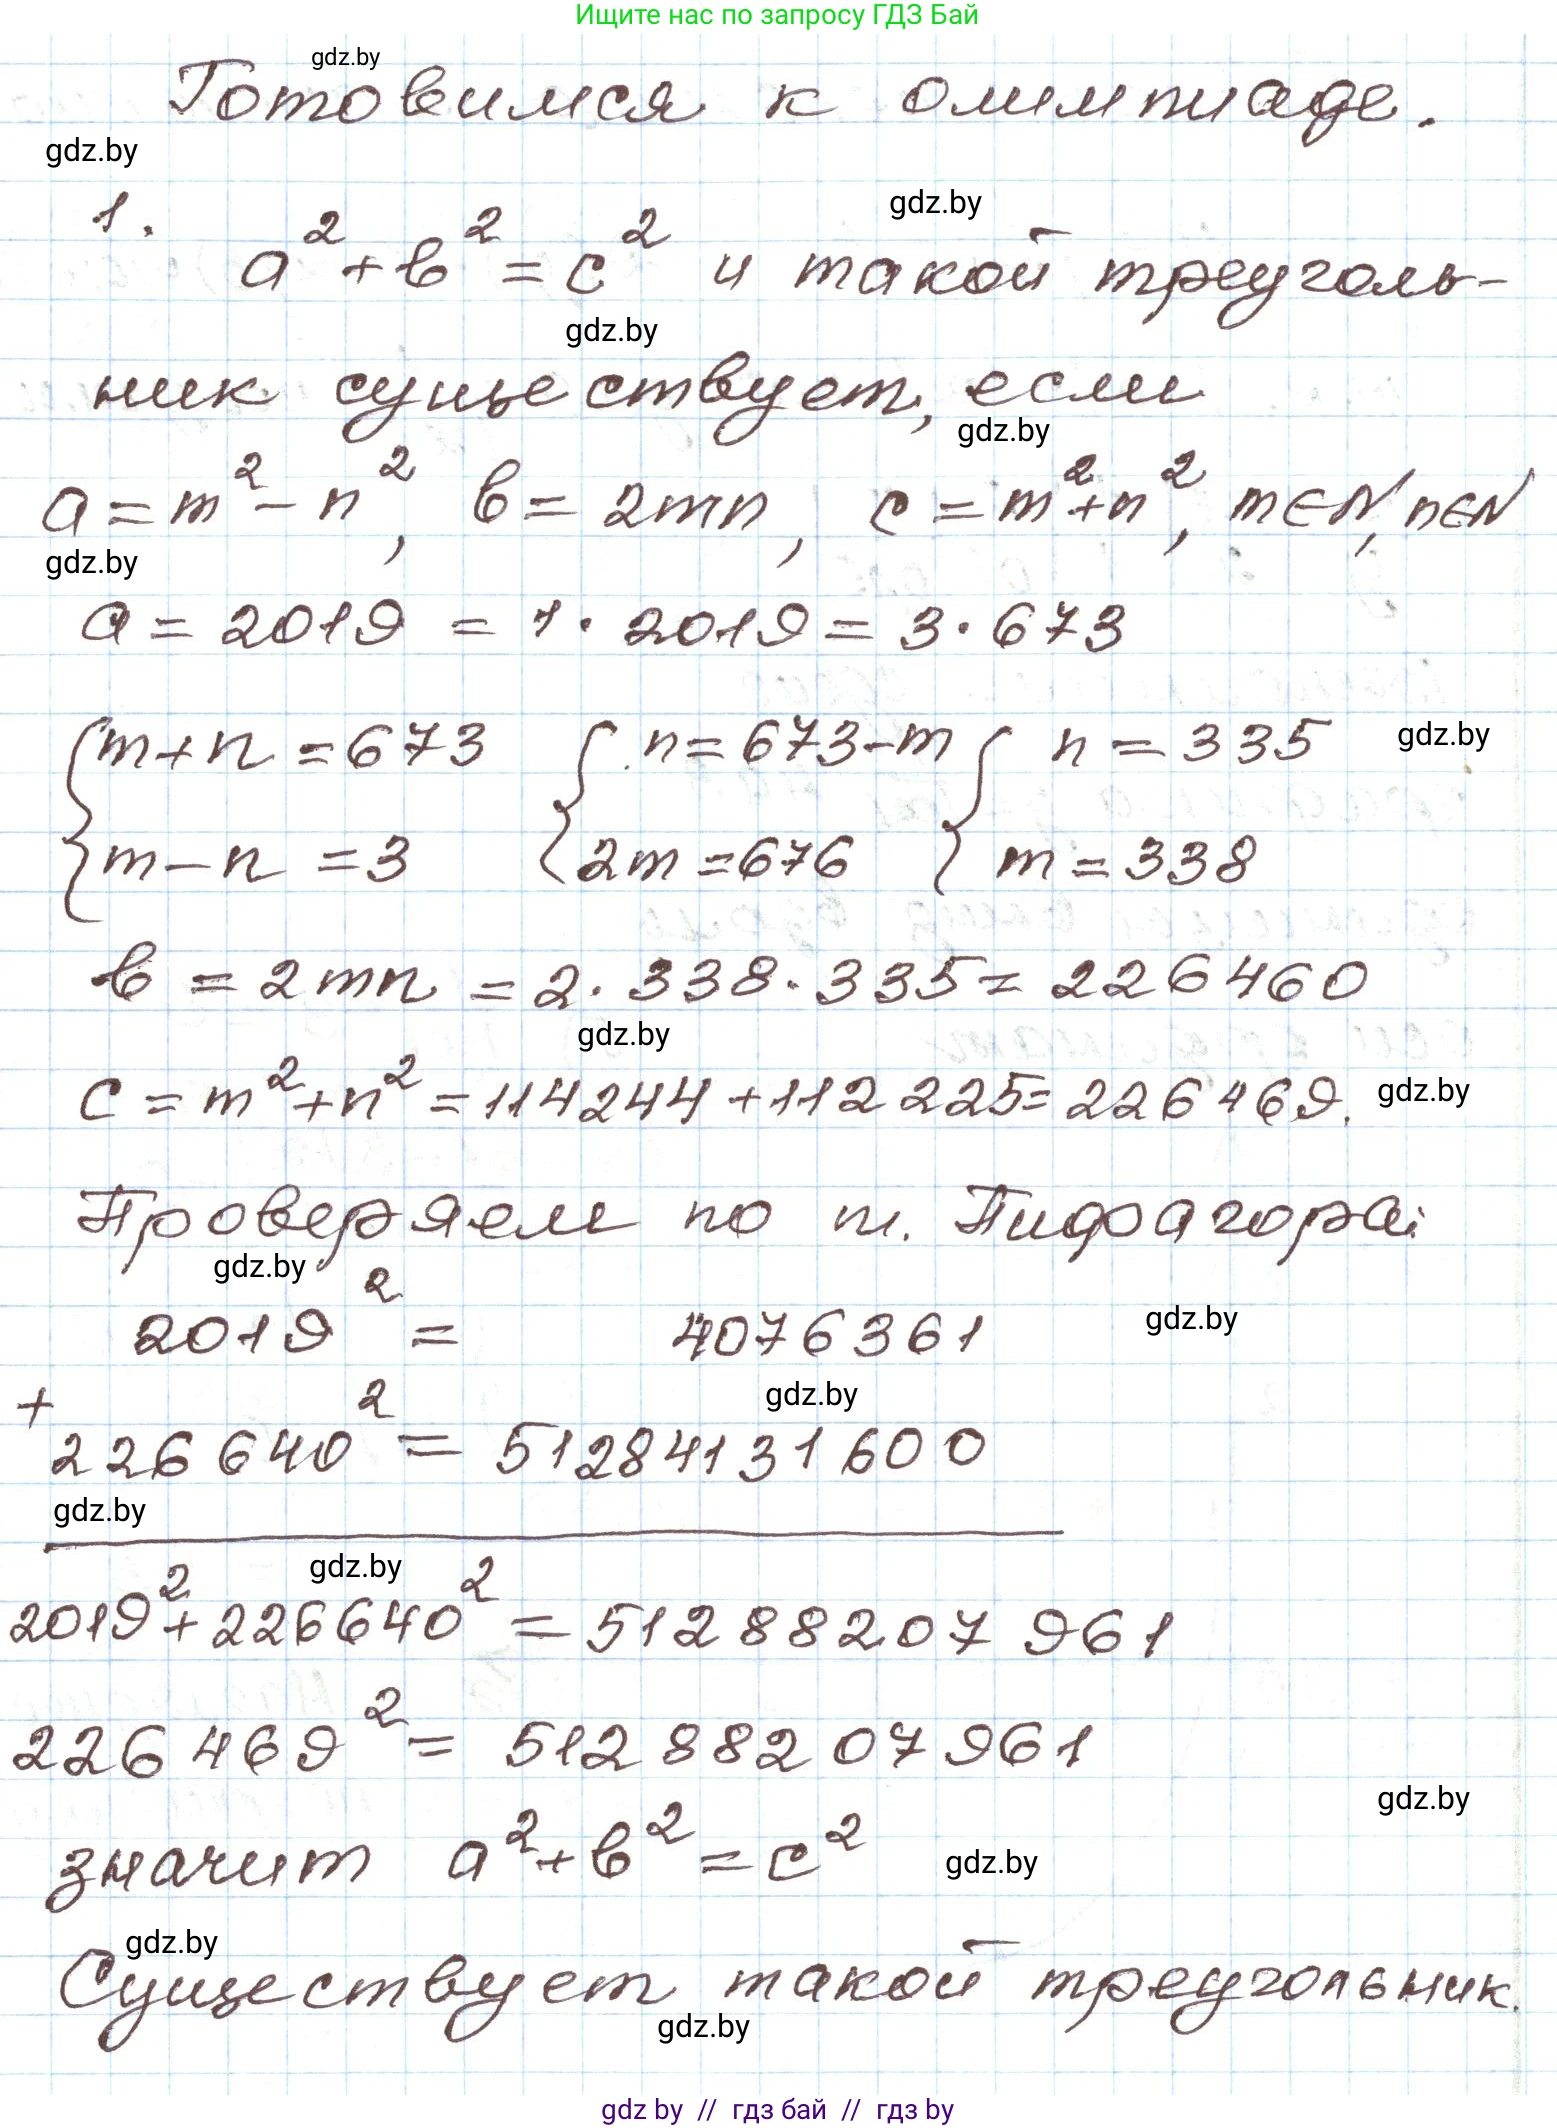 Ищите нас по запросу ГДЗ Бай
gdz.by
Готовимся к олимпиаде.
gdz.by
gdz.by
1. a²+b²=c² и такой треуголь-
gdz.by
ник существует, если
gdz.by
a=m²-n², b=2mn, c=m²+n², m∈N, n∈N
gdz.by
a=2019=1·2019=3·673
{m+n=673 {n=673-m {n=335
gdz.by
{m-n=3 {2m=676 {m=338
b=2mn=2·338·335=226460
gdz.by
c=m²+n²=114244+112225=226469.
gdz.by
Проверяем по т. Пифагора:
gdz.by
2019²= 4076361
gdz.by
gdz.by
+
226640²=51284131600
gdz.by
gdz.by
2019²+226640²=51288207961
226469²=51288207961
gdz.by
значит a²+b²=c²
gdz.by
gdz.by
Существует такой треугольник.
gdz.by
gdz by // гдз бай // gdz by